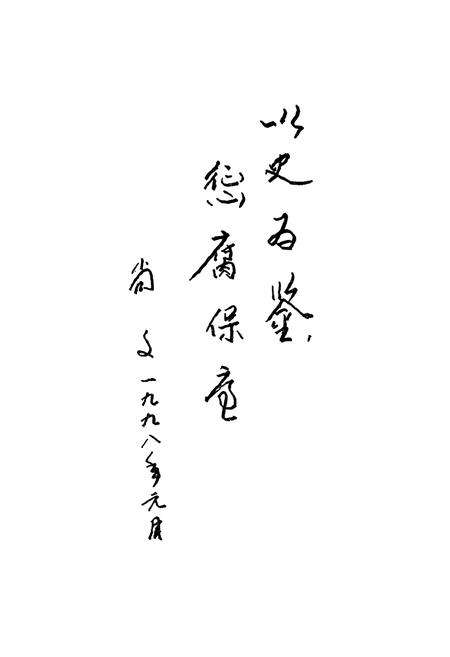 以史为鉴,
惩腐保廉
尚文一九九八年元月